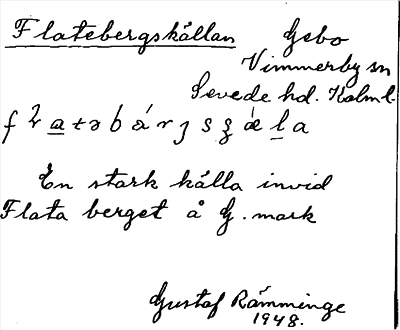 Flatebergskällan Gebo
Vimmerby sn
Sevede hd. Kalm l.
En stark källa invid
Flata berget å G. mark
Gustaf Rämminge
1948.